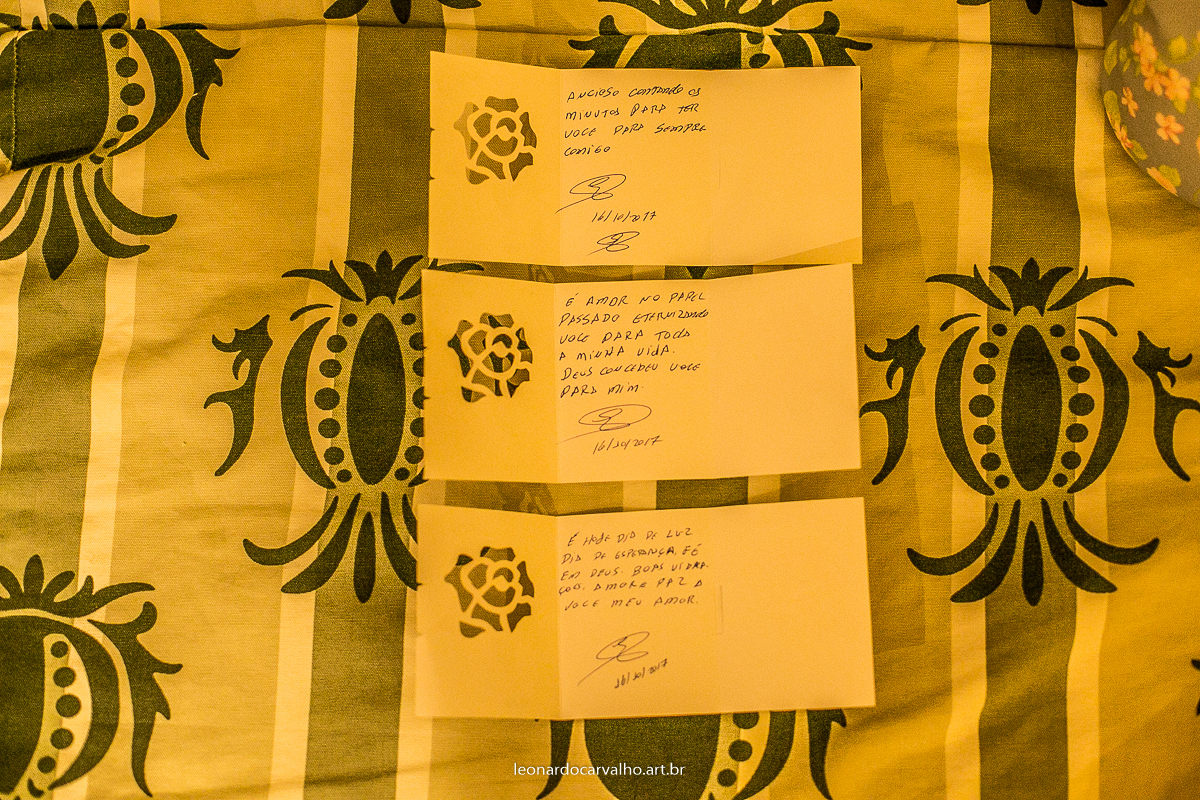 ANCIOSO CONTANDO OS
MINUTOS PARA TER
VOCE PARA SEMPRE
COMIGO
16/10/2017
É AMOR NO PAPEL
PASSADO ETERNIZANDO
VOCE PARA TODA
A MINHA VIDA.
DEUS CONCEDEU VOCE
PARA MIM.
16/10/2017
É HOJE DIA DE LUZ
DIA DE ESPERANÇA, FÉ
EM DEUS. BOAS VIBRA-
ÇOES. AMOR E PAZ A
VOCE MEU AMOR.
16/10/2017
leonardocarvalho.art.br